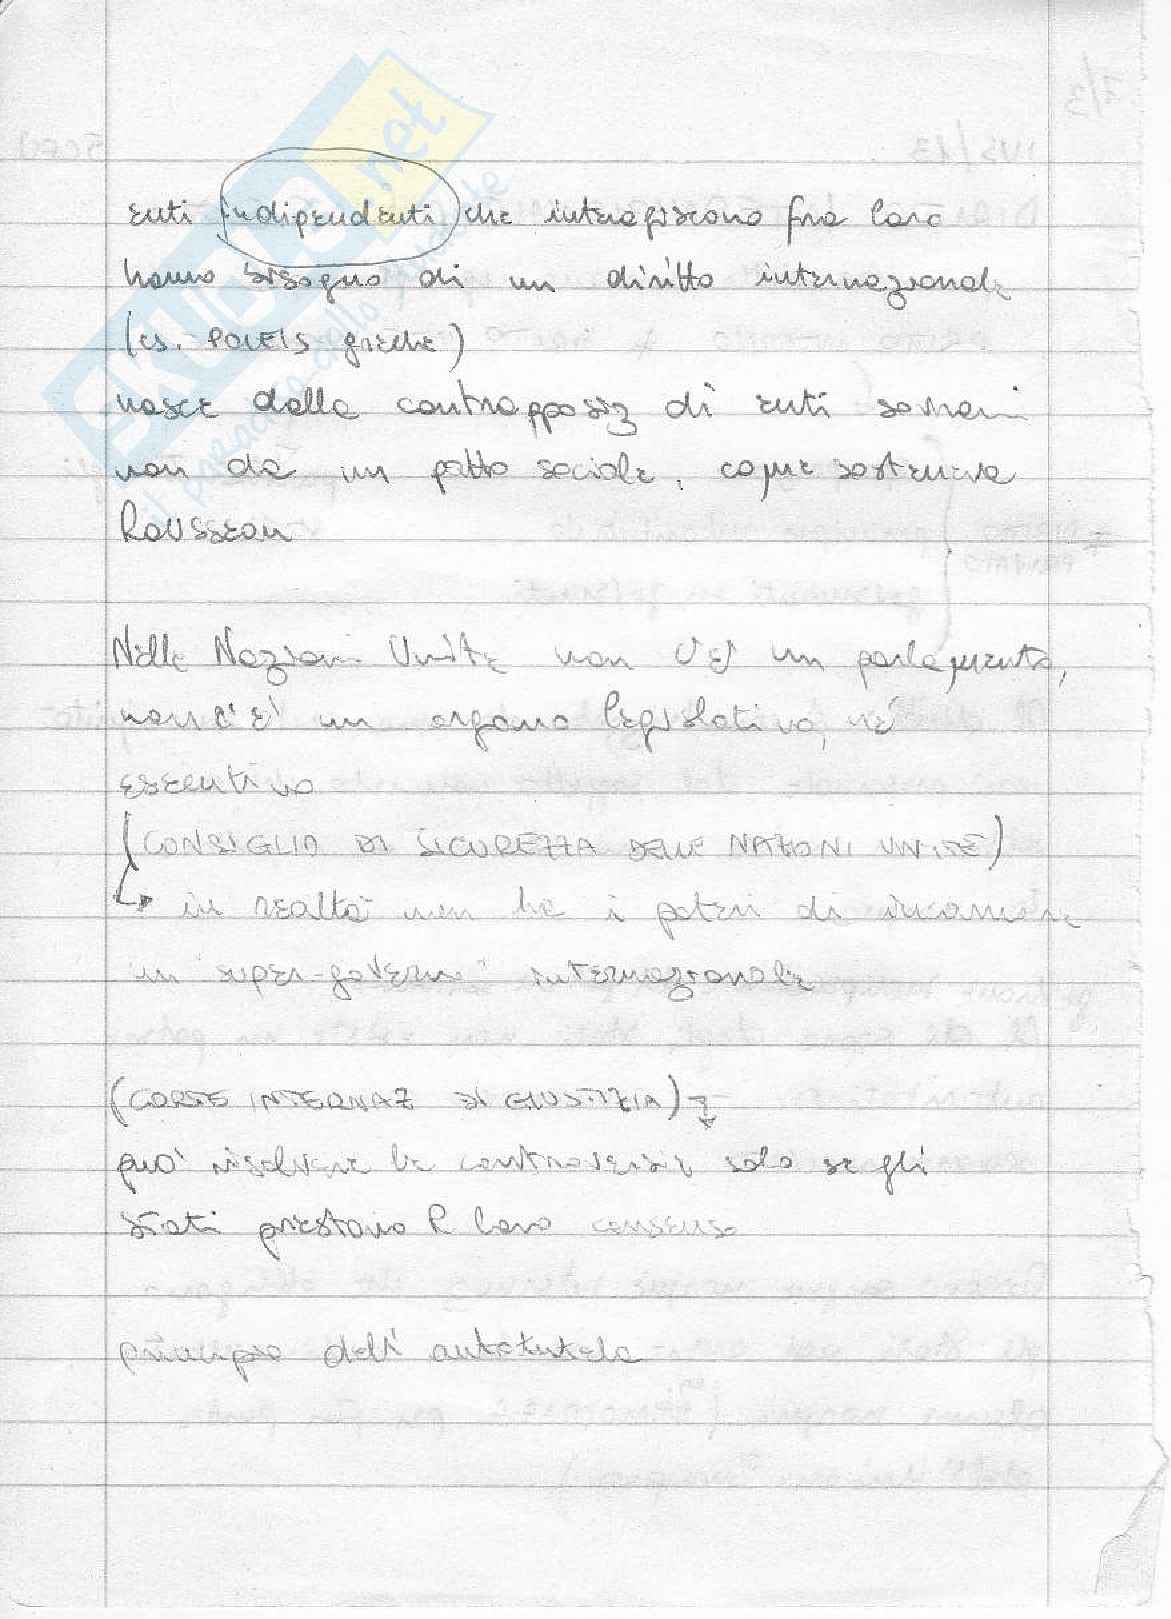 SKUOLA.net
enti indipendenti che interagiscono fra loro
hanno bisogno di un diritto internazionale
(es. POLEIS greche)
nasce dalla contrapposiz di enti sovrani
non da un patto sociale, come sosteneva
Rousseau
Nelle Nazioni Unite non c'è un parlamento,
non c'è un organo legislativo, né
esecutivo
(CONSIGLIO DI SICUREZZA DELLE NAZIONI UNITE)
↳ in realtà non ha i poteri di
un "super-governo" internazionale
(CORTE INTERNAZ DI GIUSTIZIA)
può risolvere le controversie solo se gli
stati prestano il loro consenso
principio dell'autotutela